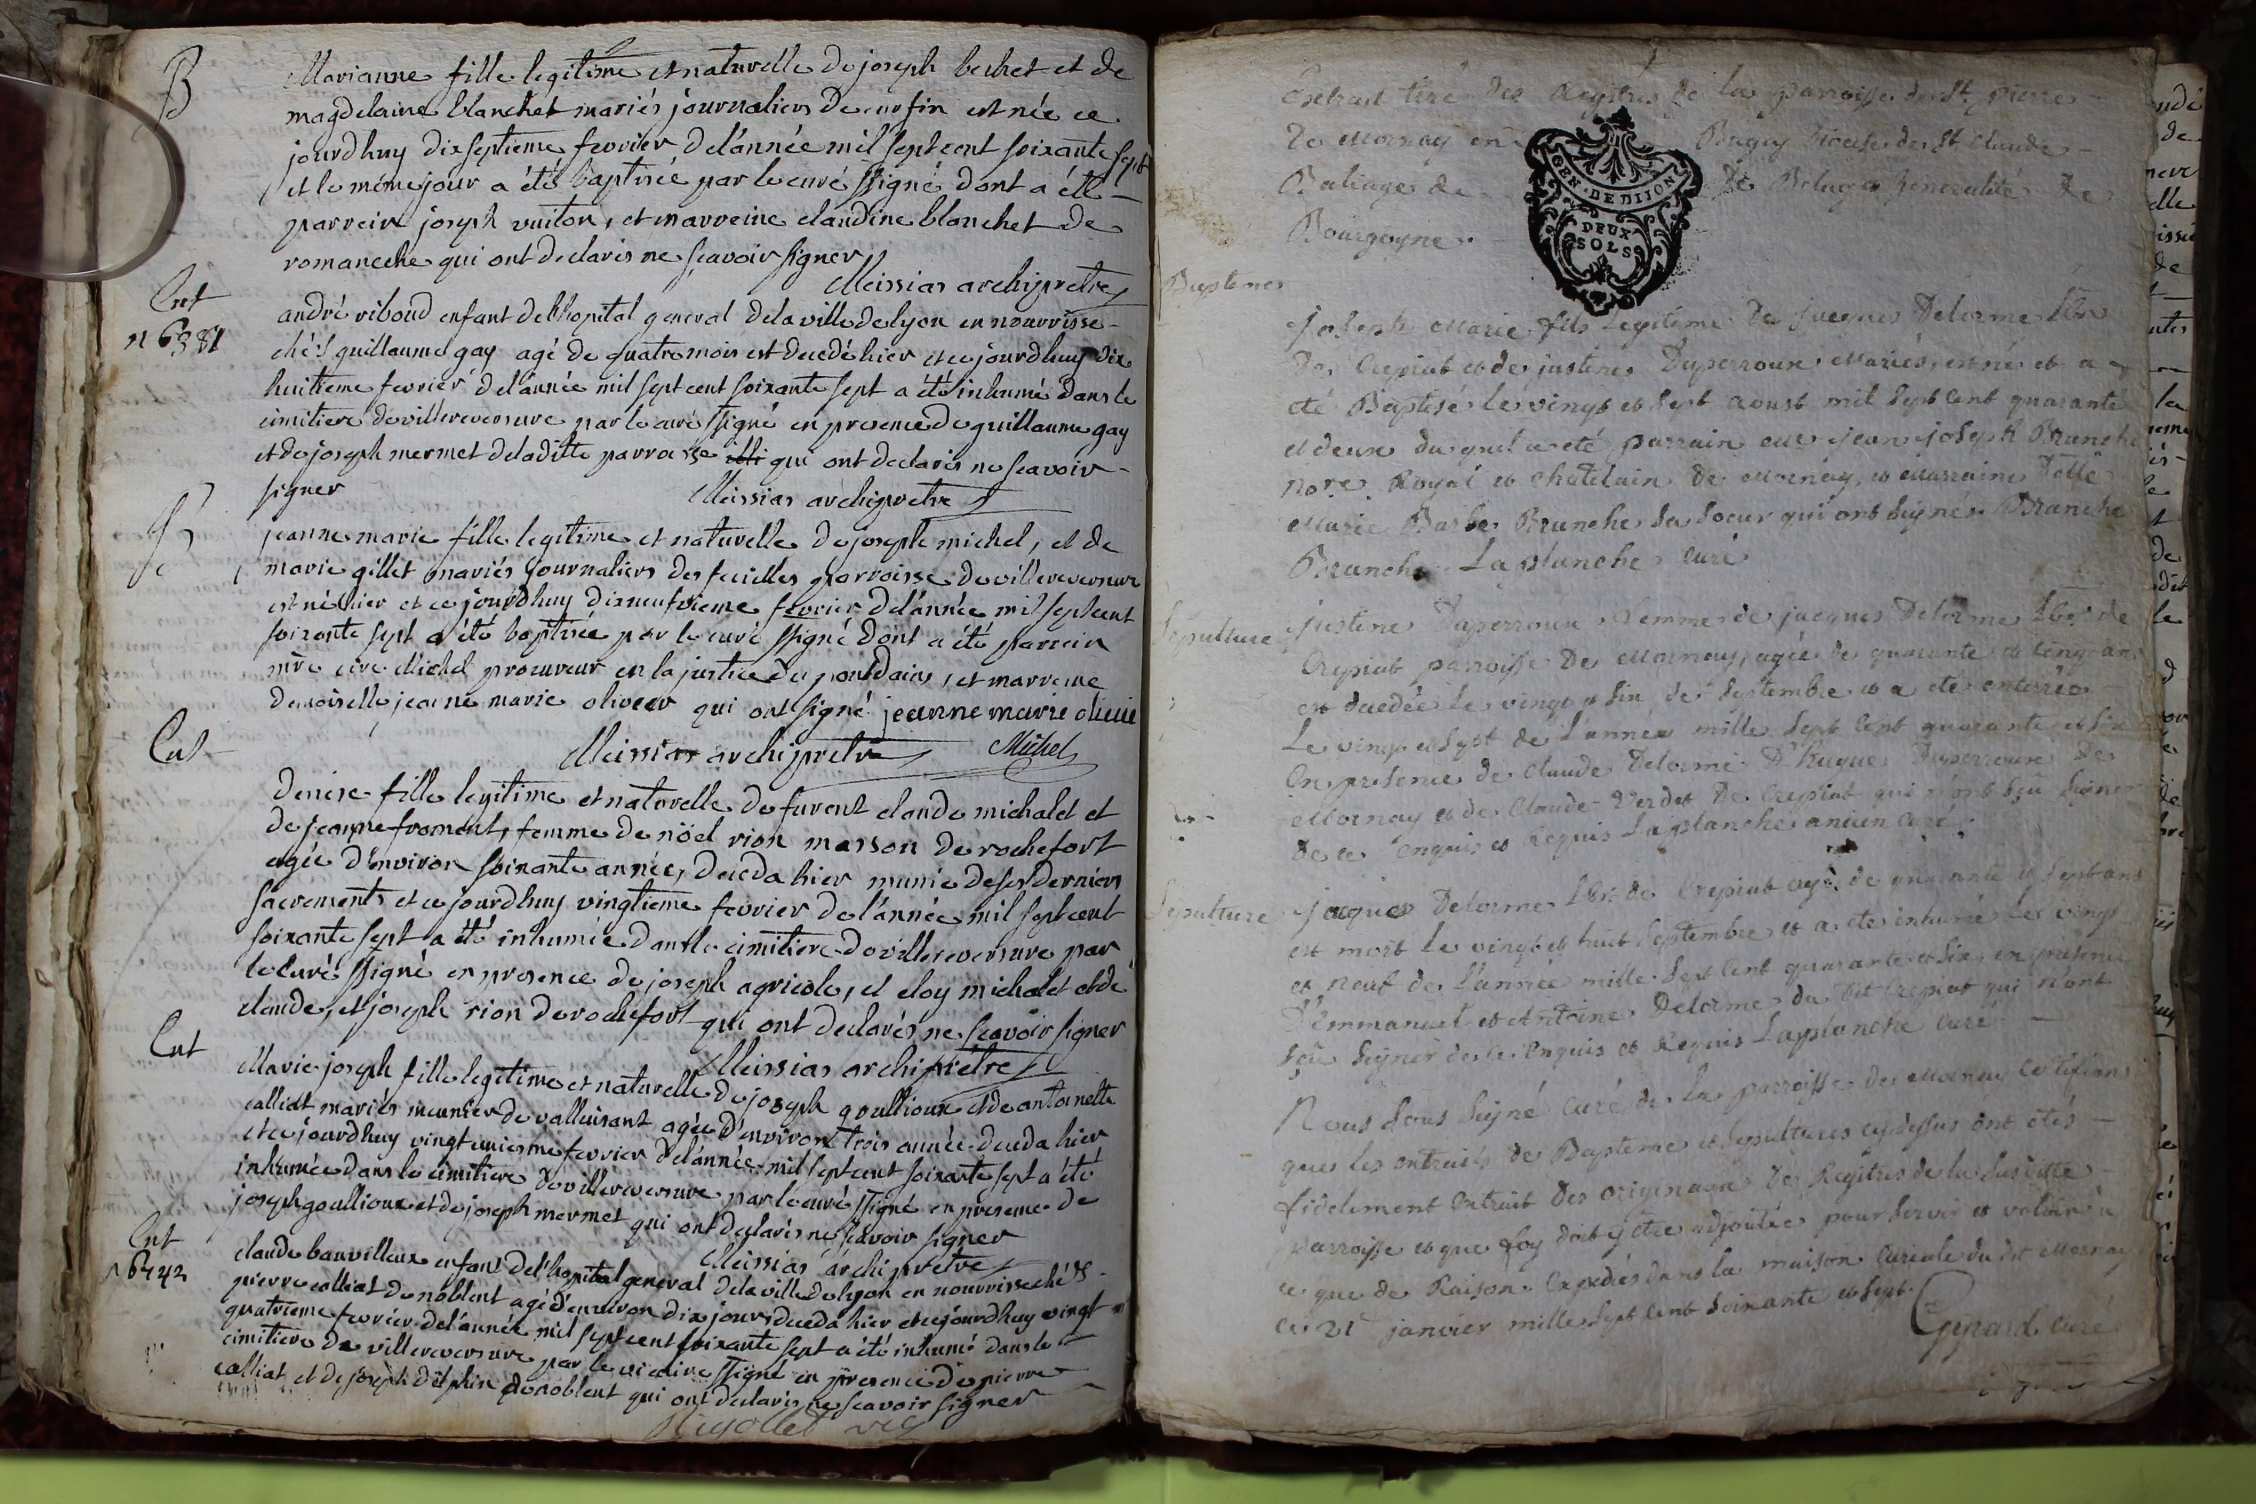 B
Marianne fille legitime et naturelle de joseph bechet et de
magdelaine blanchet mariés journaliers de enfin est née ce
jourdhuy dix septieme fevrier de l'année mil sept cent soixante sept
et le même jour a été baptisée par le curé ssigné dont a été
parrein joseph vuiton, et marreine claudine blanchet de
romaneche qui ont declarés ne sçavoir signer
Meissias archipretre
Ent
n 6381
andré riboud enfant de l'hopital general de la ville de lyon en nourrisse
chés guillaume gay agé de quatre mois est decedé hier et ce jourdhuy dix
huitieme fevrier de l'année mil sept cent soixante sept a été inhumé dans le
cimitiere de villereversure par le curé ssigné en presence de guillaume gay
et de joseph mermet de la ditte parroisse qui ont declarés ne sçavoir
signer
Meissias archipretre
B
jeanne marie fille legitime et naturelle de joseph michel, et de
marie gillet mariés journaliers des feuilles parroisse de villereversure
est né hier et ce jourdhuy dix neufvieme fevrier de l'année mil sept cent
soixante sept a été baptisée par le curé ssigné dont a été parrein
mre Michel procureur en la justice du pontdains, et marreine
demoiselle jeanne marie olivier qui ont signé jeanne marie olivie
Ent
Meissias archipretre Michel
Denise fille legitime et naturelle de furent claude michalet et
de jeanne froment, femme de nöel rion masson de rochefort
agée d'environ soixante année, deceda hier munie de ses derniers
sacrements et ce jourdhuy vingtieme fevrier de l'année mil sept cent
soixante sept a été inhumée dans le cimitiere de villereversure par
le curé ssigné en presence de joseph agricole, et eloy michalet et de
claude, et joseph rion de rochefort qui ont declarés ne sçavoir signer
Meissias archipretre
Ent
Marie joseph fille legitime et naturelle de joseph goullioux et de antoinette
calliat mariés meunier de valluisant agée d'environ trois année deceda hier
et ce jourdhuy vingt unieme fevrier de l'année mil sept cent soixante sept a été
inhumée dans le cimitiere de villereversure par le curé ssigné en presence de
joseph goullioux et de joseph mermet qui ont declarés ne sçavoir signer
Meissias archipretre
Ent
n 6442
claude bauvilleux enfant de l'hopital general de la ville de lyon en nourrisse chés
pierre calliat de noblent agé d'environ dix jours deceda hier et ce jourdhuy vingt
quatrieme fevrier de l'année mil sept cent soixante sept a été inhumé dans le
cimitiere de villereversure par le vicaire ssigné en presence de pierre
calliat et de joseph delphin de noblent qui ont declarés ne sçavoir signer
Rigollet vic
Extrait tiré des Registres de la parroisse de St. pierre
De Mornay en Bugey Diocese de St Claude
Baliage de De Beluge Generalité de
Bourgogne.
GEN. DE DIJON
DEUX
SOLS
Baptemes
Joseph Marie fils Legitime de jacques Delorme Lbr
de Crepiat et de justine Duperroux Mariés, est né et a
eté Baptisé le vingt et sept aoust mil sept cent quarante
et deux duquel a eté parrain Me jean joseph Brunche
Nore. Royal et chatelain de Mornay, et Marraine Delle
Marie Barbe Brunche sa soeur qui ont signés. Brunche
Brunche Laplanche curé
Sepulture
justine Duperroux femme de jacques Delorme Lbr. de
Crepiat paroisse De Mornay, agée de quarante et cinq ans
est decedée le vingt et six de septembre et a eté enterrée
Le vingt et sept de L'année mille sept cent quarante et six
En presence de Claude Delorme D'hugue Duperroux de
Mornay et de Claude Verdet De Crepiat qui n'ont sçû signer
De ce enquis et Requis Laplanche ancien curé.
Sepulture
jacques Delorme Lbr. de Crepiat agé de quarante et sept ans
est mort le vingt et huit septembre et a eté inhumé le vingt
et neuf de L'année mille sept cent quarante et six, en presence
d'Emmanuel et Antoine Delorme du dit Crepiat qui n'ont
sçû signer de ce Enquis et Requis Laplanche curé
Nous sous signé curé de la parroisse de Mornay certifions
que les extraits de Bapteme et sepultures cy dessus ont étés
fidelement Extrait Des originaux Des Registres de la susditte
parroisse et que foy doit y être adjoutée pour servir et valoir à
ce que de Raison. Expediés dans la maison curiale du dit Mornay
ce 21 janvier mille sept cent soixante et sept.
Genard curé